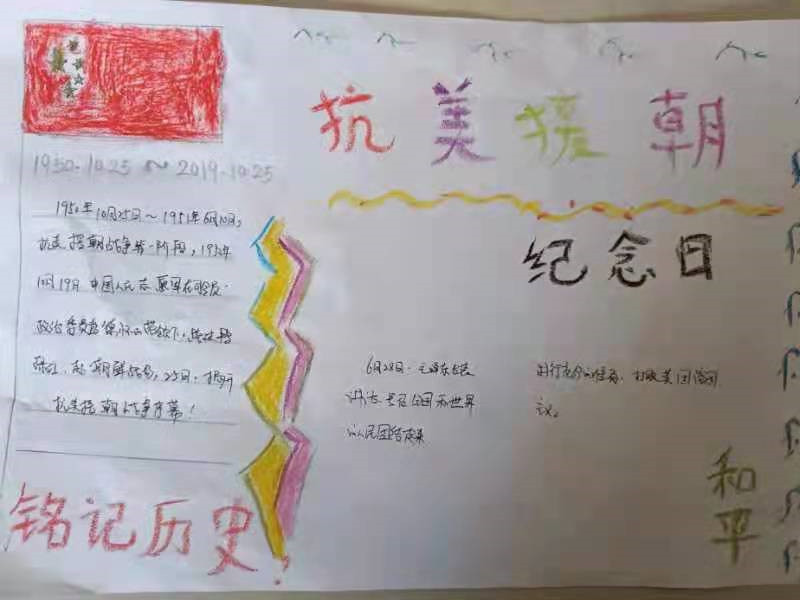 抗美援朝
纪念日
1950.10.25～2019.10.25
1950年10月25日～1951年6月10日,
抗美援朝战争第一阶段,1950年
10月19日 中国人民志愿军在司令员
政治委员彭 的带领下,
江,赴朝鲜 ,25日,揭开
抗美援朝战争序幕!
6月28日,毛泽东发表
讲 号召全国和世界
人民团结起来
进行充分的准备,打败美国
和平
铭记历史